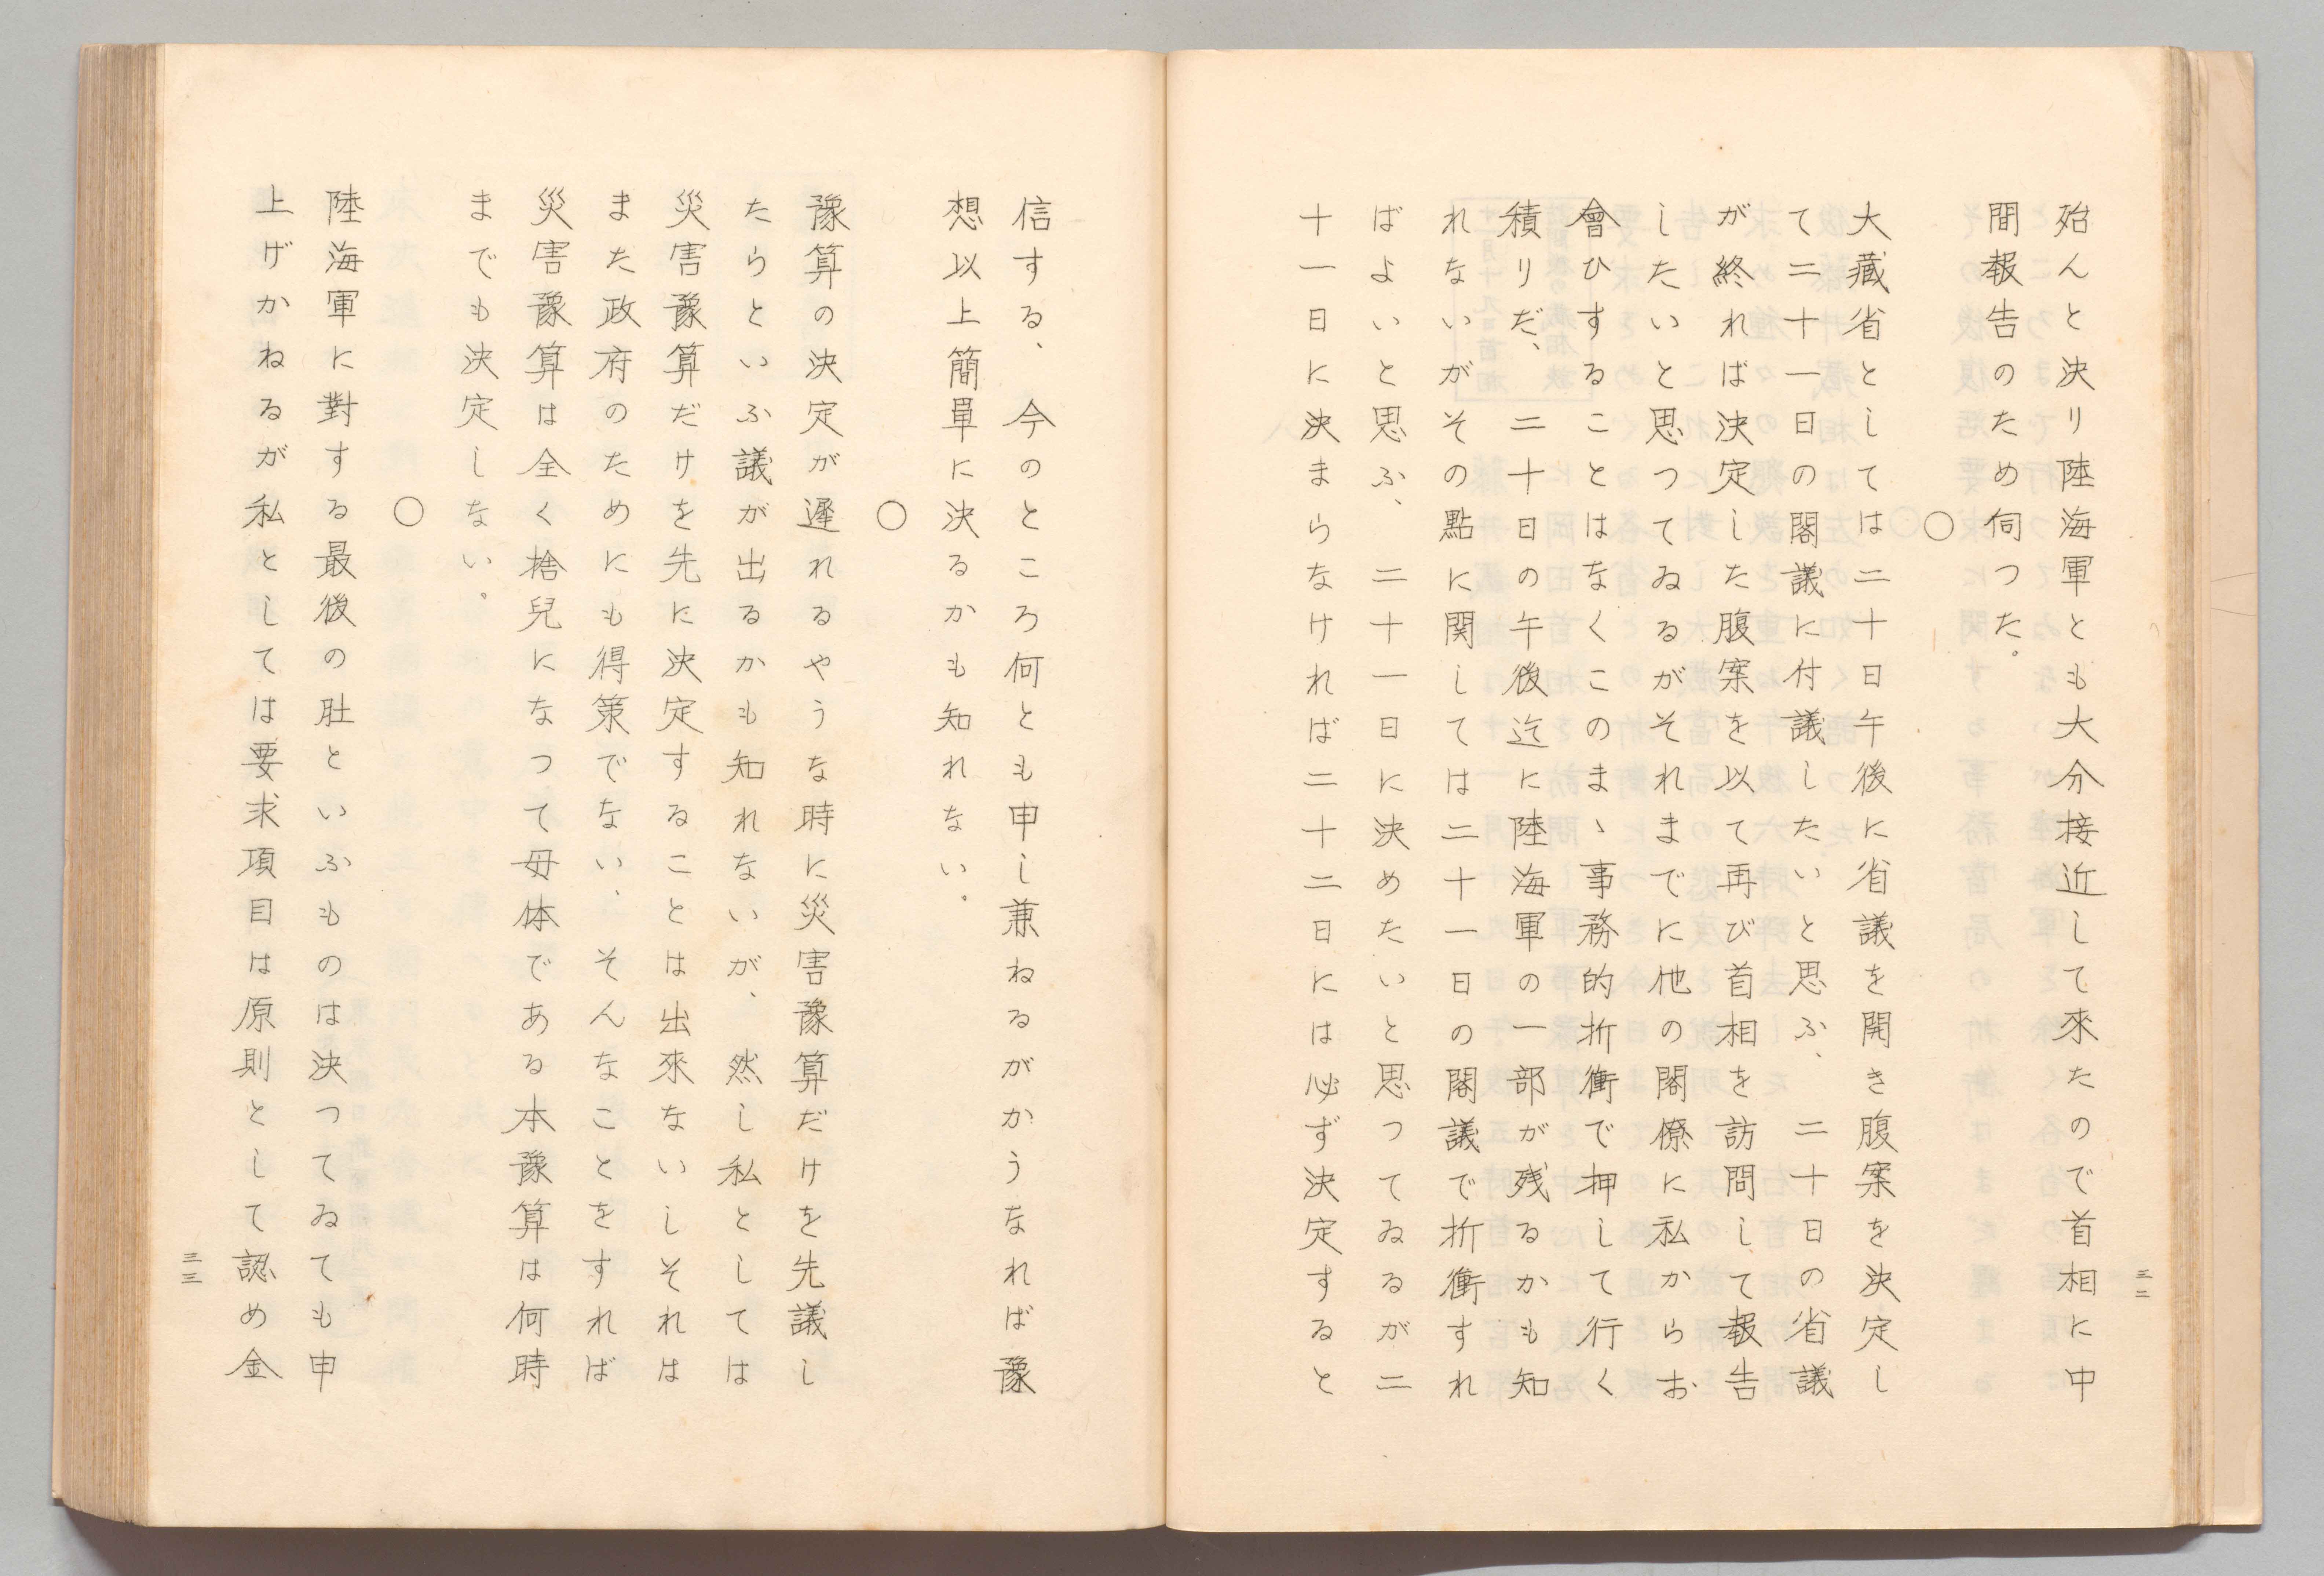 殆んと決り陸海軍とも大分接近して來たので首相に中
間報告のため伺つた。
○
大藏省としては二十日午後に省議を開き腹案を決定し
て二十一日の閣議に付議したいと思ふ、二十日の省議
が終れば決定した腹案を以て再び首相を訪問して報告
したいと思つてゐるがそれまでに他の閣僚に私からお
會ひすることはなくこのまゝ事務的折衝で押して行く
積りだ、二十日の午後迄に陸海軍の一部が残るかも知
れないがその點に関しては二十一日の閣議で折衝すれ
ばよいと思ふ、二十一日に決めたいと思つてゐるが二
十一日に決まらなければ二十二日には必ず決定すると
三二
信する、今のところ何とも申し兼ねるがかうなれば豫
想以上簡單に決るかも知れない。
○
豫算の決定が遲れるやうな時に災害豫算だけを先議し
たらといふ議が出るかも知れないが、然し私としては
災害豫算だけを先に決定することは出來ないしそれは
また政府のためにも得策でない、そんなことをすれば
災害豫算は全く捨兒になつて母体である本豫算は何時
までも決定しない。
○
陸海軍に對する最後の肚といふものは決つてゐても申
上げかねるが私としては要求項目は原則として認め金
三三